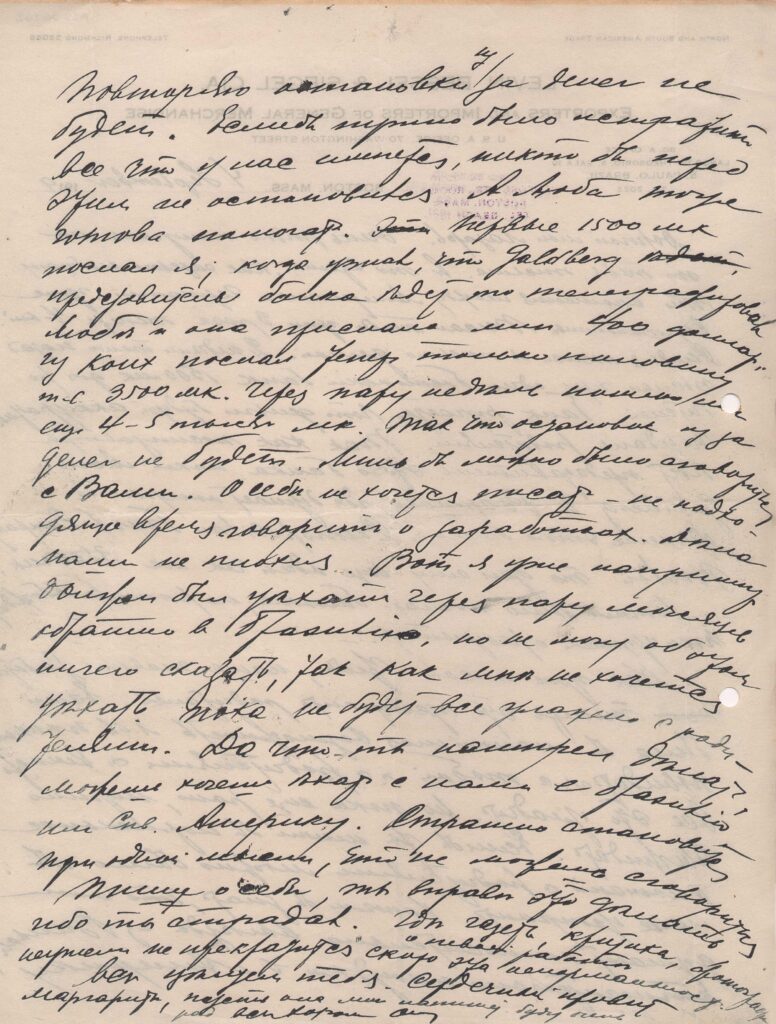 Повторяю остановки из за денег не
будет. Еслибъ нужно было истратить
все что у нас имеется, никто бъ перед
этим не остановится и Люба тоже
готова помогать. Первые 1500 мк
послал я, когда узнал, что Goldberg
представитель банка ѣдет то телеграфировал
Любѣ и она прислала мнѣ 400 доллар.
из коих послал теперь только половину
т-с 3500 мк. Через пару недѣль пошлю
еще 4-5 тысяч мк. Так что остановок из за
денег не будет. Лишь бъ можно было сговориться
с Вами. О себѣ не хочется писать - не подхо-
дящее время говорить о заработках. Дѣла
наши не плохия. Вот я уже напримѣр
должен был уѣхать через пару мѣсяцев
обратно в Бразилию, но не могу об этом
ничего сказать, так как мнѣ не хочется
уѣхать пока не будет все улажено с роди-
телями. Да что-ты намѣрен дѣлать,
можешь хочешь ѣхать с нами в Бразилию
или Сѣв. Америку. Страшно становится
при одной мысли, что не можешь сговориться
Пишу о себѣ, ты вправѣ это дѣлать
ибо ты страдал. Гдѣ газеты, критика, фотографии
о твоей работѣ
неужели не прекратится скоро эта неизвѣстность.
Всѣ цѣлуем тебя. Сердечный привѣт
Маргаритѣ, пусть она мнѣ напишет